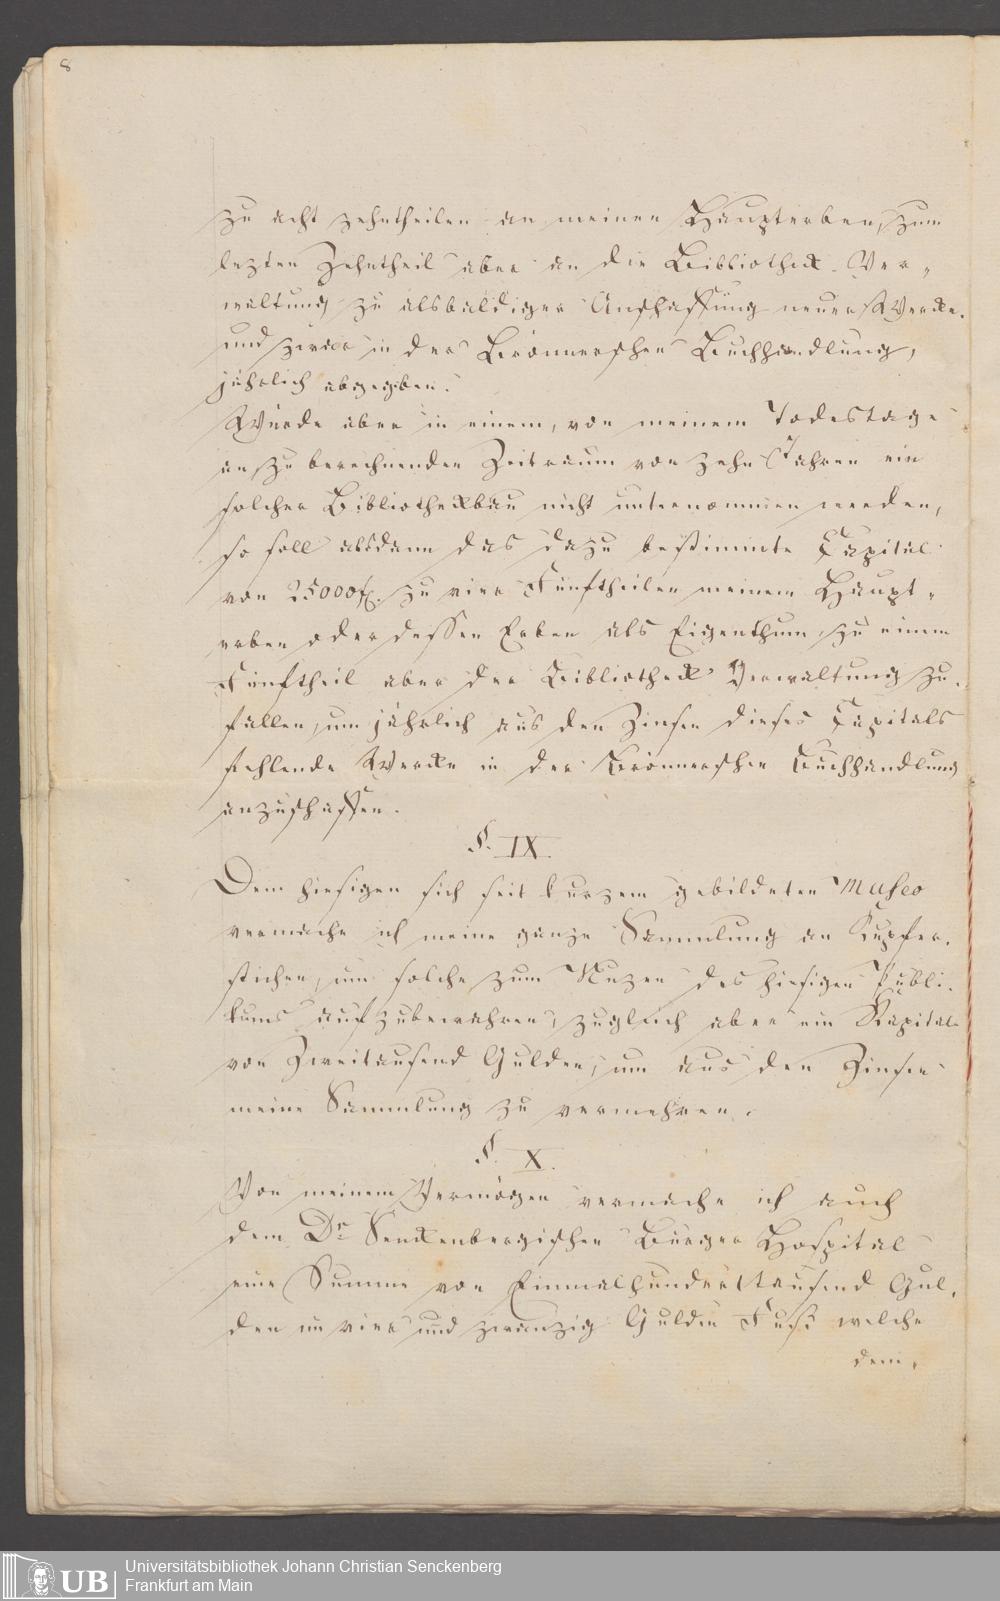 8
zu acht zehntheilen an meinen Haupterben, zum
lezten Zehntheil aber an die Bibliothek-Ver-
waltung zu alsbaldiger Anschaffung neuer Wercke,
und zwar in der Brönnerschen Buchhandlung,
jährlich abgegeben.
Würde aber in einem, von meinem Todestage
an, zu berechnenden Zeitraum von zehn Jahren ein
solcher Bibliothekbau nicht unternommen werden,
so soll alsdann das dazu bestimmte Capital
von 25000 f. zu vier Fünftheilen meinem Haupt-
erben oder dessen Erben als Eigenthum, zu einem
Fünftheil aber der Bibliotheck Verwaltung zu-
fallen, um jährlich aus den Zinsen dieses Capitals
fehlende Wercke in der Brönnerschen Buchhandlung
anzuschaffen.
§. IX.
Dem hiesigen sich seit kurzem gebildeten Museo
vermache ich meine ganze Sammlung an Kupfer-
stichen, um solche zum Nuzen des hiesigen Publi-
kums aufzubewahren, zugleich aber ein Kapital
von Zweitausend Gulden, um aus den Zinsen
meine Sammlung zu vermehren.
§. X.
Von meinem Vermögen vermache ich auch
dem Dr. Senckenbergischen Bürger Hospital
eine Summe von Einmalhunderttausend Gul-
den im vier und zwanzig Gulden Fuß welche
dem,
UB
Universitätsbibliothek Johann Christian Senckenberg
Frankfurt am Main